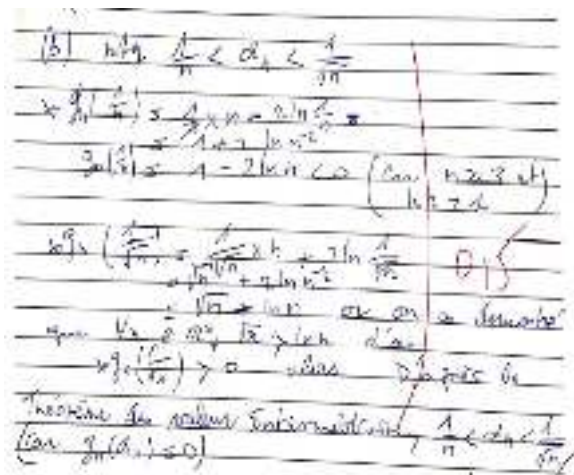 (b) Mtq 1/n < αn < 1/√n
* gn(1/n) = 1/n × n + 2 ln 1/n
= 1 + 2 ln n^-1
gn(1/n) = 1 - 2 ln n < 0 (car n ≥ 3 et
ln 3 > 1)
* gn(1/√n) = 1/√n × n + 2 ln 1/√n
0,5
= √n + 2 ln
= √n - ln n or on a démontré
que √n > ln n d'où
gn(1/√n) > 0 alors D'après le
Théorème des valeurs intermédiaires, 1/n < αn < 1/√n
(car gn(αn) = 0)